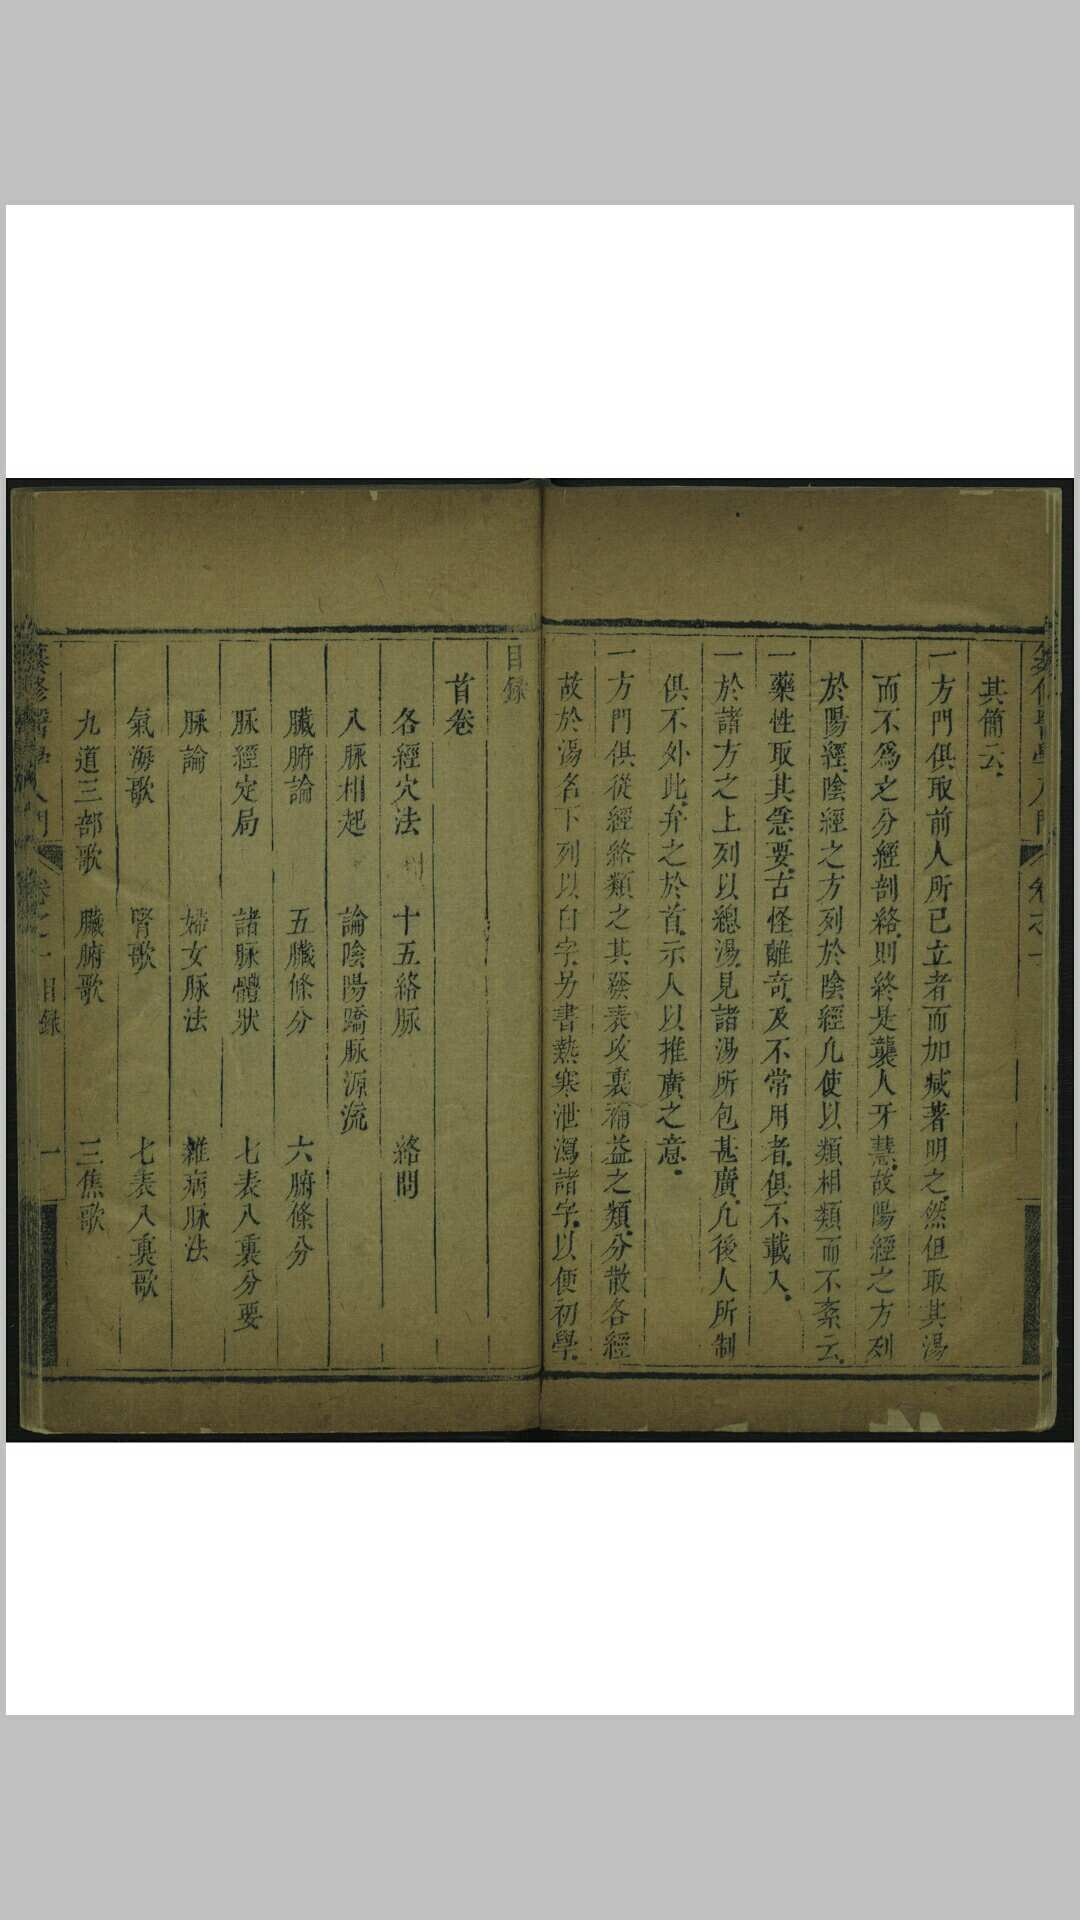 其簡云
一方門俱取前人所已立者而加減著明之然但取其湯
而不為之分經剖絡則終是襲人牙慧故陽經之方列
於陽經陰經之方列於陰經凡使以類相類而不紊云
一藥性取其急要古怪離奇及不常用者俱不載入
一於諸方之上列以總湯見諸湯所包甚廣凡後人所制
俱不外此弁之於首示人以推廣之意
一方門俱從經絡類之其發表攻裏補益之類分散各經
故於湯名下列以白字另書熱寒泄瀉諸字以便初學
目録
首卷
各經穴法 十五絡脉 絡問
八脉相起 論陰陽蹻脉源流
臟腑論 五臟條分 六腑條分
脉經定局 諸脉體狀 七表八裏分要
脉論 婦女脉法 雜病脉法
氣海歌 腎歌 七表八裏歌
九道三部歌 臟腑歌 三焦歌
纂修醫學入門 卷之一目録 一